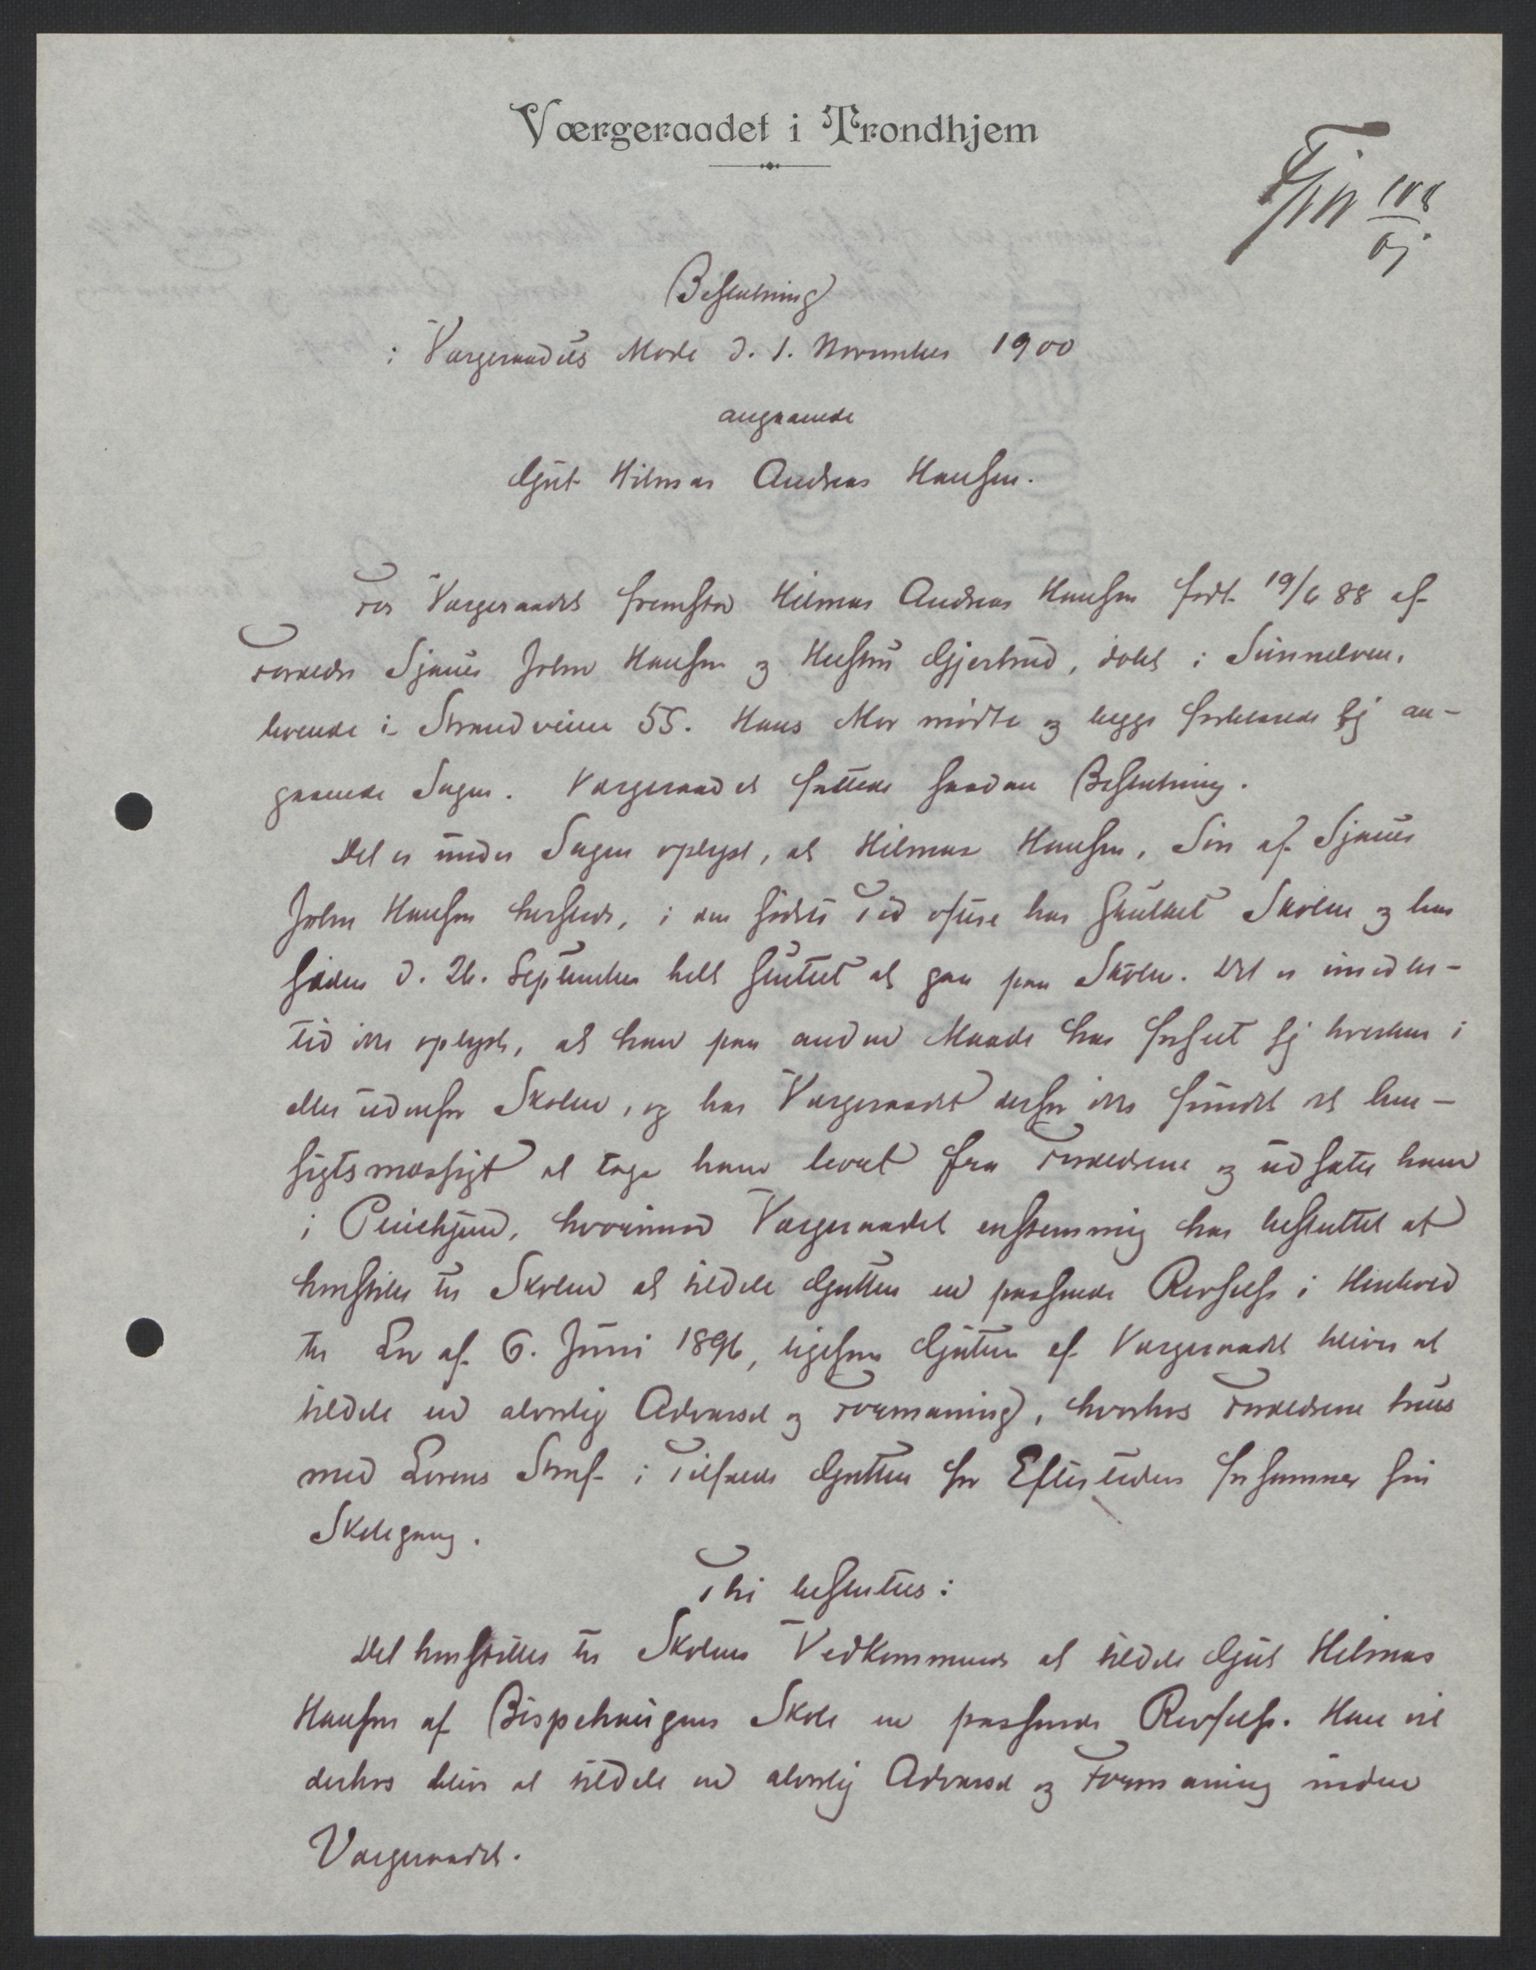 Værgeraadet i Trondhjem
108
Beslutning
i Værgeraadets Møde d. 1. November 1900
angaaende
Gut Hilmar Andreas Hansen.
For Værgeraadet fremstod Hilmar Andreas Hansen født 19/6 88 af
Forældre Sjauer John Hansen og Hustru Gjertrud, døbt i Sunnelven,
boende i Strandveien 55. Hans Mor mødte og begge forklarede sig an-
gaaende Sagen. Værgeraadet fattede saadan Beslutning.
Det er under Sagen oplyst, at Hilmar Hansen, Søn af Sjauer
John Hansen hersteds, i den sidste Tid oftere har skulket Skolen og har
siden d. 26. September helt sluttet at gaa paa Skolen. Det er imidler-
tid ikke oplyst, at han paa anden Maade har forseet sig hverken i
eller udenfor Skolen, og har Værgeraadet derfor ikke fundet det hen-
sigtsmæssigt at tage ham bort fra Forældrene og udsætte ham
i Pleiehjem, hvorimod Værgeraadet enstemmig har besluttet at
henstille til Skolen at tildele Gutten en passende Revselse i Henhold
til Lov af 6. Juni 1896, ligesom Gutten af Værgeraadet bliver at
tildele en alvorlig Advarsel og Formaning, hvorhos Forældrene trues
med Lovens Straf i Tilfælde Gutten for Eftertiden forsømmer sin
Skolegang.
Thi besluttes:
Det henstilles til Skolens Vedkommende at tildele Gut Hilmar
Hansen af Bispehaugens Skole en passende Revselse. Han vil
derhos blive at tildele en alvorlig Advarsel og Formaning inden
Værgeraadet.